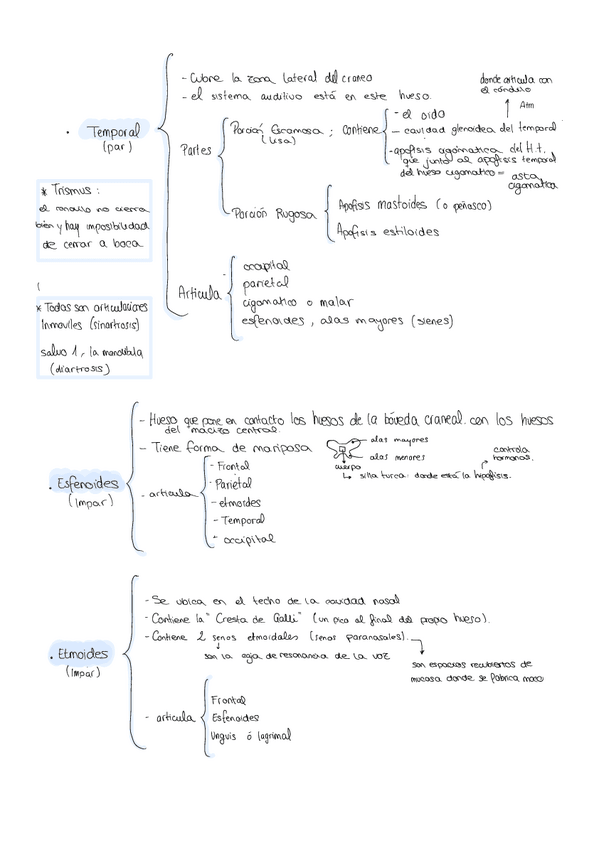 - Cubre la zona lateral del craneo
- el sistema auditivo está en este hueso.
donde articula con
el cóndilo
Atm
• Temporal
(par)
Partes
Porción Escamosa ; contiene
(Lisa)
- el oido
- cavidad glenoidea del temporal
- apofisis cigomatica del H.t.
que junto al apofisis temporal
del hueso cigomatico = asta
cigomatica
Porción Rugosa
Apofisis mastoides (o peñasco)
Apofisis estiloides
* Trismus :
el no cierra
bien y hay imposibilidad
de cerrar a boca
Articula
occipital
parietal
cigomatico o malar
esfenoides, alas mayores (sienes)
* Todas son articulaciones
Inmoviles (sinartrosis)
salvo 1, la mandibula
(diartrosis)
- Hueso que pone en contacto los huesos de la bóveda craneal con los huesos
del macizo central.
- Tiene forma de mariposa
alas mayores
alas menores
cuerpo
↳ silla turca: donde está la hipofisis.
controla
hormonas.
• Esfenoides
(Impar)
- articula
- Frontal
- Parietal
- etmoides
- Temporal
- occipital
- Se ubica en el techo de la cavidad nasal
- Contiene la "Cresta de Galli" (un pico al final del propio hueso).
- Contiene 2 senos etmoidales (senos paranasales).
son la caja de resonancia de la voz
son espacios recubiertos de
mucosa donde se fabrica moco
• Etmoides
(Impar)
- articula
Frontal
Esfenoides
Unguis ó lagrimal